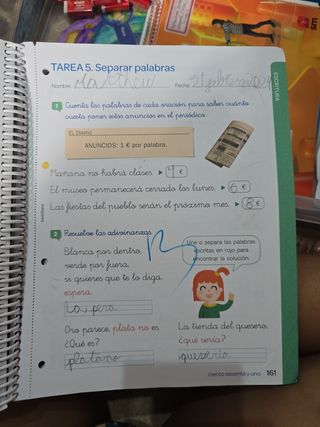 TAREA 5. Separar palabras
Nombre Matthew Fecha 21 febrero
ESCRITURA
1 Cuenta las palabras de cada oración para saber cuánto
cuesta poner estos anuncios en el periódico.
EL DIARIO
ANUNCIOS: 1 € por palabra.
Mañana no habrá clases. ▶ 4 €
El museo permanecerá cerrado los lunes. ▶ 6 €
Las fiestas del pueblo serán el próximo mes. ▶ 8 €
2 Resuelve las adivinanzas.
Blanca por dentro,
verde por fuera,
si quieres que te lo diga,
espera.
La pera
Une o separa las palabras
escritas en rojo para
encontrar la solución.
Oro parece, plata no es.
¿Qué es?
platano
La tienda del quesero,
¿qué sería?
quesería
ciento sesenta y uno 161
sm